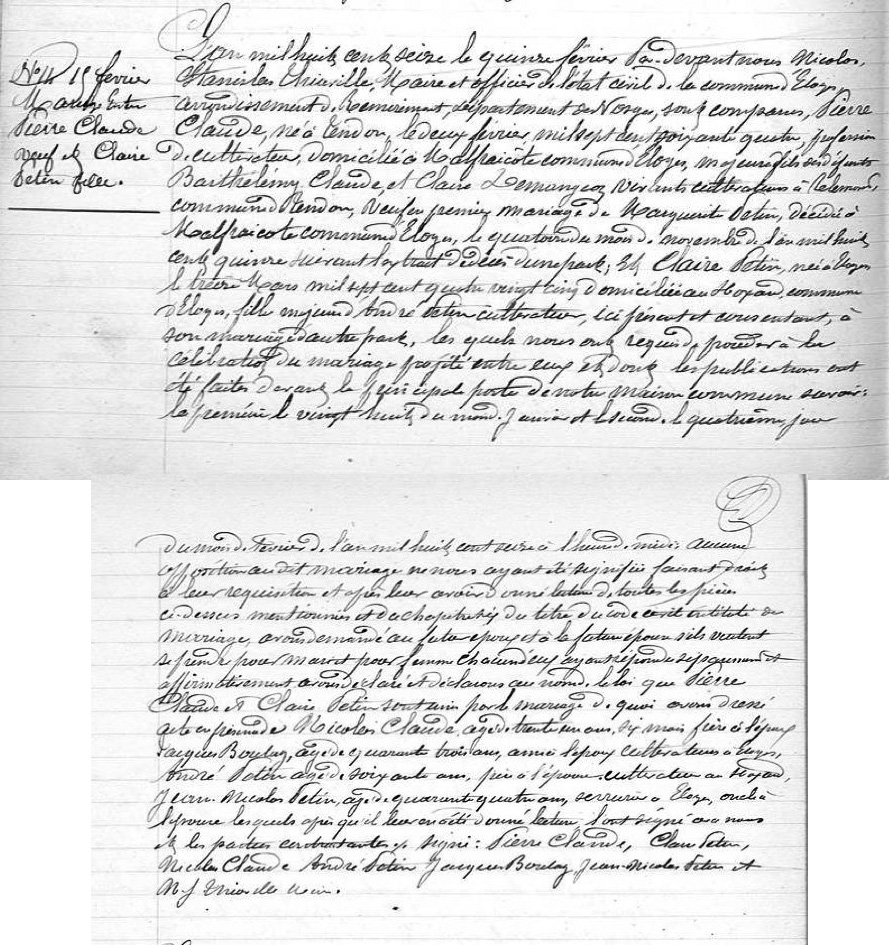 N° 4 15 février
Mariage Entre
Pierre Claude
veuf et Claire
Petin fille.
L'an mil huit cent seize le quinze février Par devant nous Nicolas,
Stanislas Maire et officier de l'état civil de la commune d'Eloyes,
arrondissement de Remiremont, département des Vosges, sont comparus, Pierre
Claude, né à Tendon, le deux février mil sept cent soixante quatre, profession
de cultivateur, domicilié à Malfraicôte commune d'Eloyes, majeur fils des défunts
Barthélémy Claude, et Claire Demangeon vivants cultivateurs à
commune de Tendon, veuf en premier mariage de Marguerite Petin, décédée à
Malfraicote commune d'Eloyes, le quatorze du mois de novembre de l'an mil huit
cent quinze suivant l'extrait de décès d'une part; Et Claire Petin, née à Eloyes
le treize Mars mil sept cent quatre vingt cinq domiciliée au commune
d'Eloyes, fille majeure d'André Petin cultivateur, ici présent et consentant, à
son mariage d'autre part, les quels nous ont requis de procéder à la
célébration du mariage projeté entre eux et dont les publications ont
été faites devant la principale porte de notre maison commune savoir:
la première le vingt huit du mois de Janvier et la seconde le quatrième jour
du mois de février de l'an mil huit cent seize à l'heure de midi aucune
opposition au dit mariage ne nous ayant été signifiée faisant droit
à leur requisition et après leur avoir donné lecture de toutes les pièces
ci-dessus mentionnées et du chapitre six du titre du code civil intitulé du
mariage, avons demandé au futur epoux et à la future épouse s'ils veulent
se prendre pour mari et pour femme chacun d'eux ayant répondu séparément et
affirmativement avons déclaré et déclarons au nom de la loi que Pierre
Claude et Claire Petin sont unis par le mariage de quoi avons dressé
acte en présence de Nicolas Claude, agé de trente un ans, six mois frère à l'époux
Jacques Boulay, agé de quarante trois ans, ami à l'epoux cultivateurs à Eloyes,
André Petin agé de soixante ans, père à l'épouse cultivateur au
Jean Nicolas Petin, agé de quarante quatre ans, serrurier à Eloyes, oncle à
l'épouse lesquels après qu'il leur en a été donné lecture l'ont signé avec nous
et les parties contractantes signé: Pierre Claude, Claire Petin,
Nicolas Claude André Petin Jacques Boulay, Jean Nicolas Petin et
N. S.